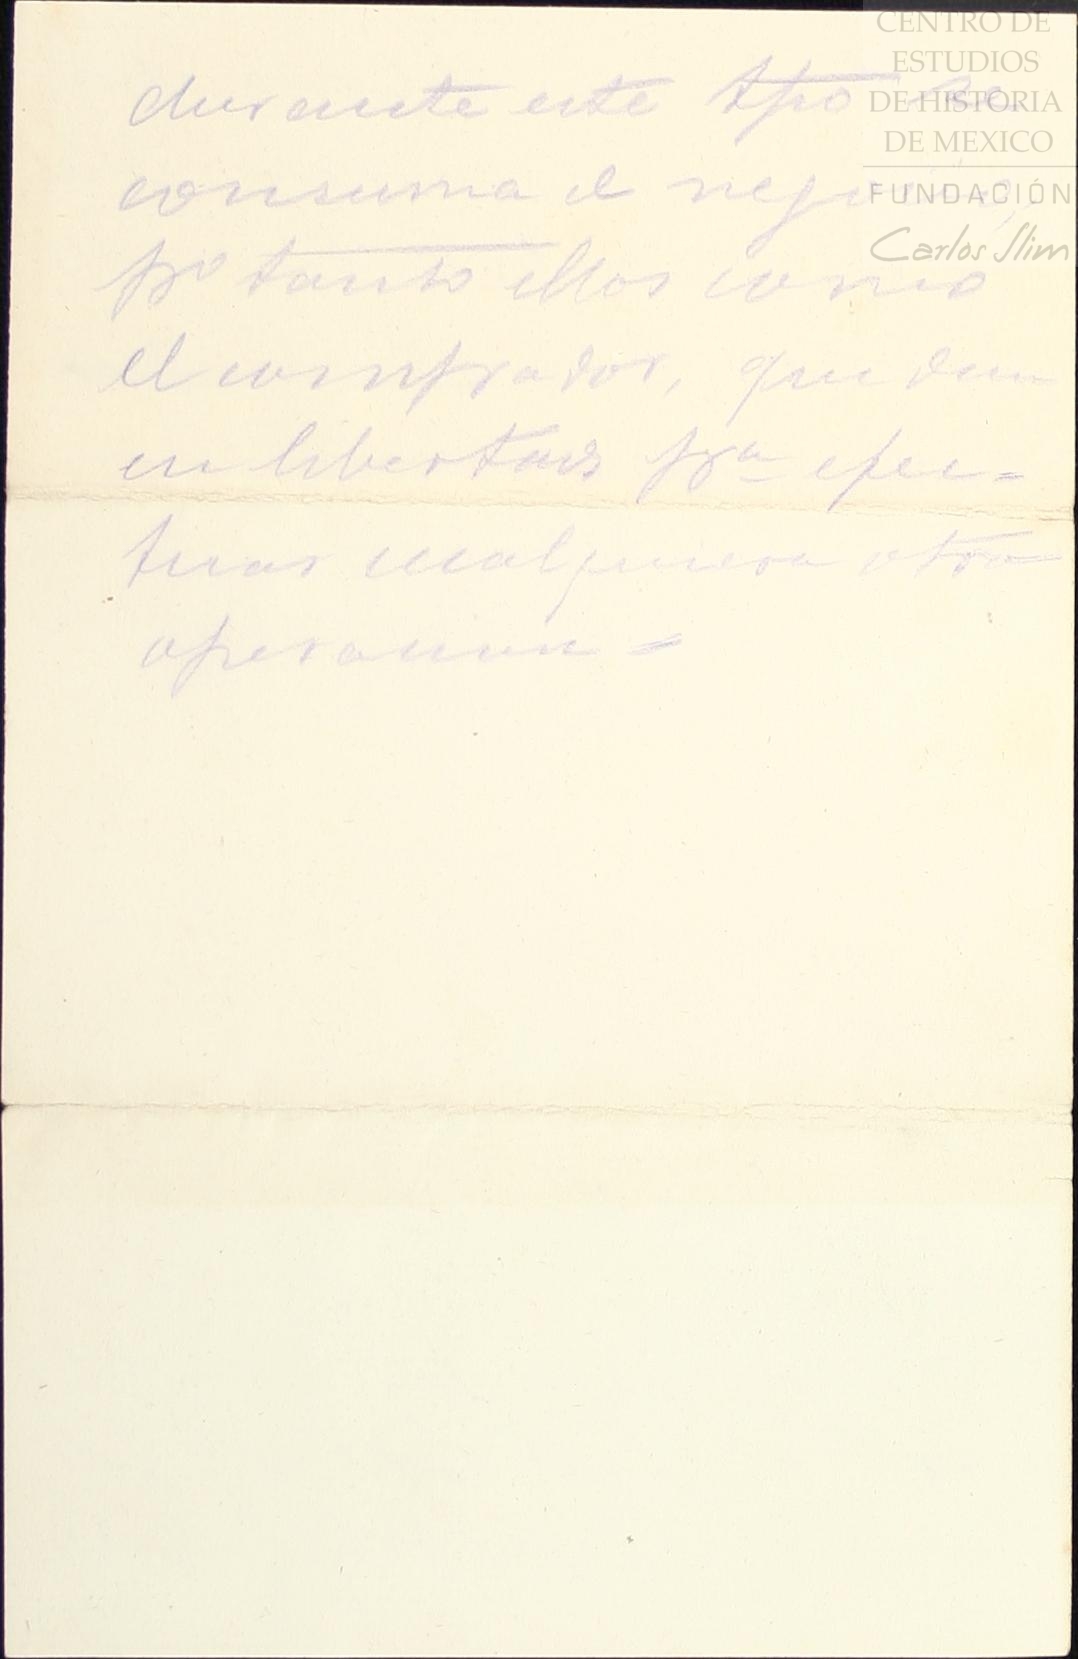 CENTRO DE
ESTUDIOS
DE HISTORIA
DE MEXICO
FUNDACIÓN
Carlos Slim
durante este tpo se
consuma el negocio,
pº tanto ellos como
el comprador, quedan
en libertad pª efec=
tuar cualquiera otra
operacion =